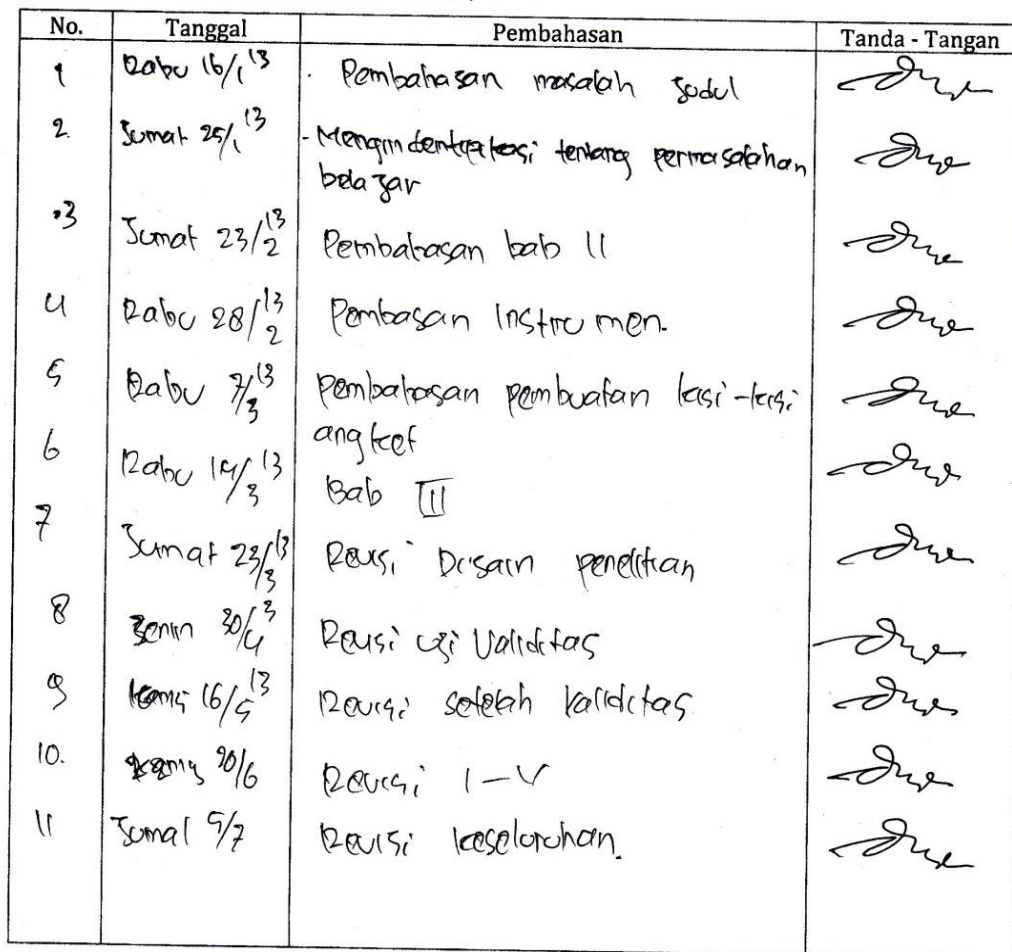 No. Tanggal Pembahasan Tanda - Tangan
1 Rabu 16/1 13 . Pembahasan masalah Judul
2. Jumat 25/1 13 - Mengindentifikasi tentang permasalahan
belajar
3 Jumat 23/2 13 Pembahasan bab II
4 Rabu 28/2 13 Pembasan Instrumen.
5 Rabu 7/3 13 Pembahasan pembuatan kisi-kisi
angket
6 Rabu 14/3 13 Bab III
7 Jumat 23/3 13 Revisi Disain penelitian
8 Senin 30/4 13 Revisi uji Validitas
9 Kamis 16/5 13 Revisi setelah Validitas
10. Kamis 20/6 Revisi I-V
11 Jumat 5/7 Revisi keseluruhan.